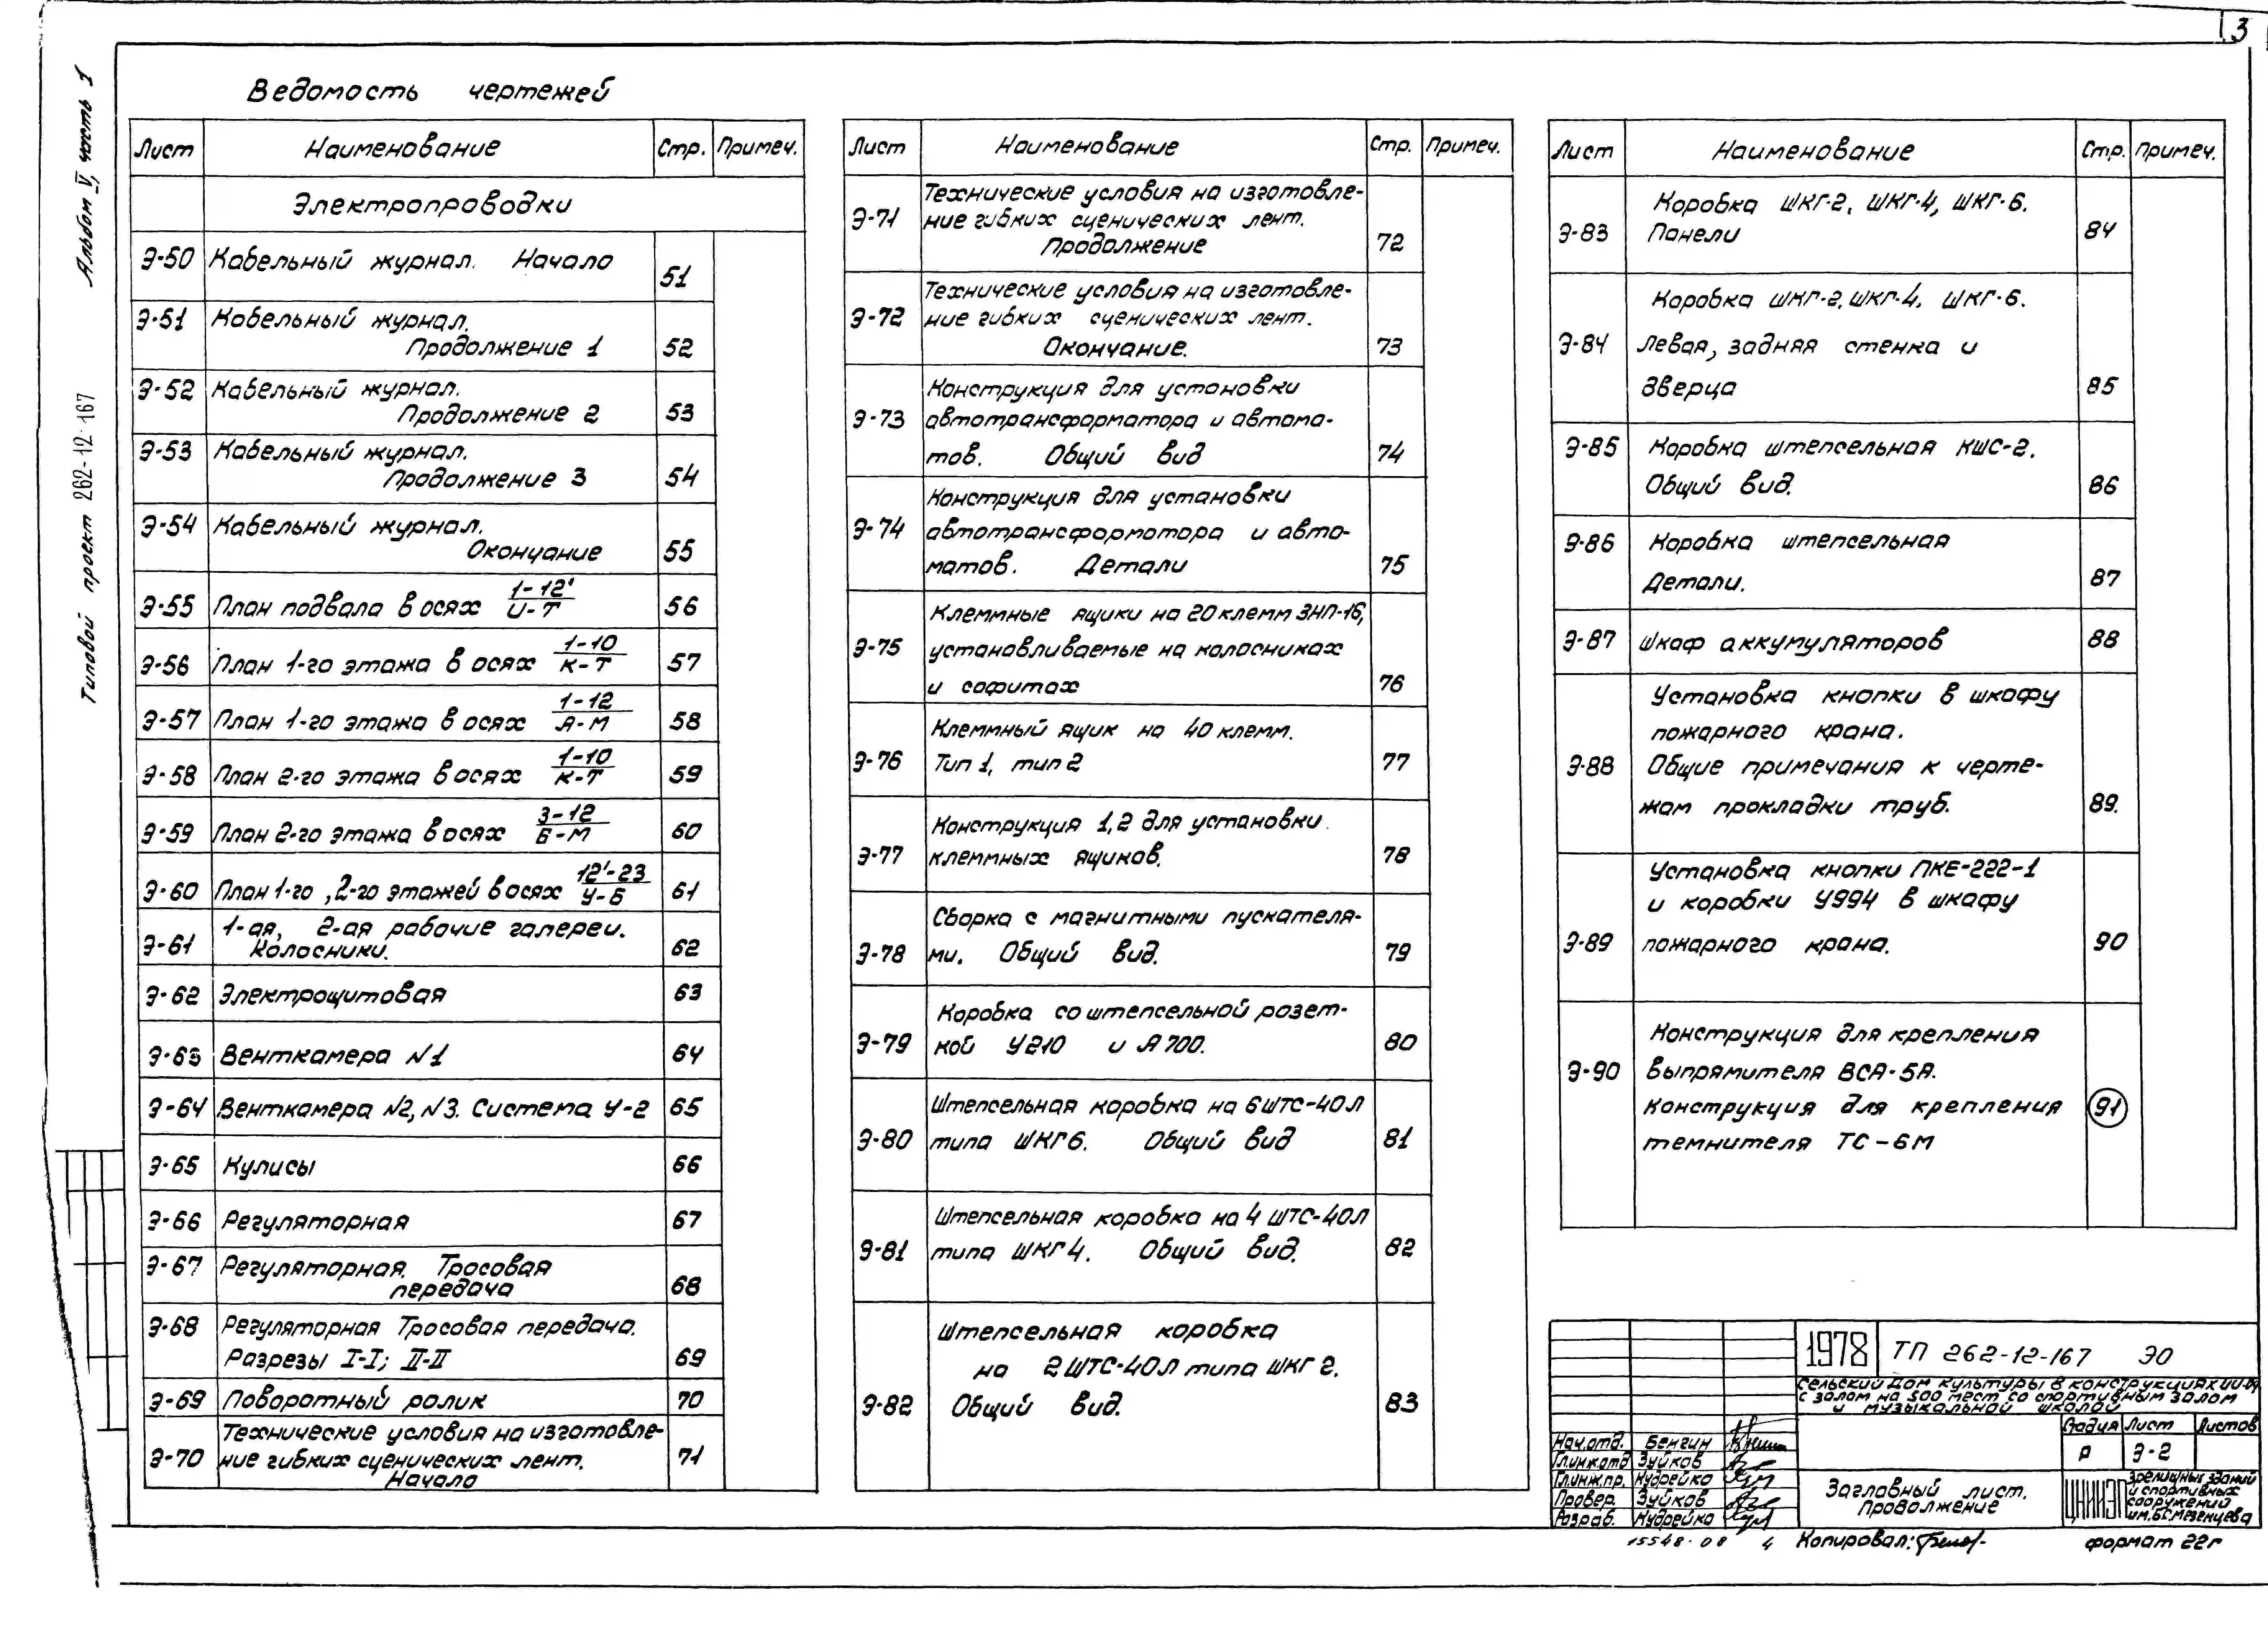 3
Альбом V, часть 1
Типовой проект 262-12-167
Ведомость чертежей
Лист Наименование Стр. Примеч.
Электропроводки
Э-50 Кабельный журнал. Начало 51
Э-51 Кабельный журнал.
Продолжение 1 52
Э-52 Кабельный журнал.
Продолжение 2 53
Э-53 Кабельный журнал.
Продолжение 3 54
Э-54 Кабельный журнал.
Окончание 55
Э-55 План подвала в осях 1-12'/И-Т 56
Э-56 План 1-го этажа в осях 1-10/К-Т 57
Э-57 План 1-го этажа в осях 1-12/А-М 58
Э-58 План 2-го этажа в осях 1-10/К-Т 59
Э-59 План 2-го этажа в осях 3-12/Б-М 60
Э-60 План 1-го, 2-го этажей в осях 12'-23/У-Б 61
Э-61 1-ая, 2-ая рабочие галереи.
Колосники. 62
Э-62 Электрощитовая 63
Э-63 Венткамера №1 64
Э-64 Венткамера №2, №3. Система У-2 65
Э-65 Кулисы 66
Э-66 Регуляторная 67
Э-67 Регуляторная. Тросовая
передача 68
Э-68 Регуляторная Тросовая передача.
Разрезы I-I; II-II 69
Э-69 Поворотный ролик 70
Технические условия на изготовле-
Э-70 ние гибких сценических лент. 71
Начало
Лист Наименование Стр. Примеч.
Технические условия на изготовле-
Э-71 ние гибких сценических лент.
Продолжение 72
Технические условия на изготовле-
Э-72 ние гибких сценических лент.
Окончание. 73
Конструкция для установки
Э-73 автотрансформатора и автома-
тов. Общий вид 74
Конструкция для установки
Э-74 автотрансформатора и авто-
матов. Детали 75
Клеммные ящики на 20 клемм ЗНП-16,
Э-75 устанавливаемые на колосниках
и софитах 76
Клеммный ящик на 40 клемм.
Э-76 Тип 1, тип 2 77
Конструкция 1,2 для установки
Э-77 клеммных ящиков. 78
Сборка с магнитными пускателя-
Э-78 ми. Общий вид. 79
Коробка со штепсельной розет-
Э-79 кой У210 и А700. 80
Штепсельная коробка на 6 ШТС-40Л
Э-80 типа ШКГ6. Общий вид 81
Штепсельная коробка на 4 ШТС-40Л
Э-81 типа ШКГ4. Общий вид. 82
Штепсельная коробка
на 2 ШТС-40Л типа ШКГ 2.
Э-82 Общий вид. 83
Лист Наименование Стр. Примеч.
Коробка ШКГ-2, ШКГ-4, ШКГ-6.
Э-83 Панели 84
Коробка ШКГ-2, ШКГ-4, ШКГ-6.
Э-84 Левая, задняя стенка и
дверца 85
Э-85 Коробка штепсельная КШС-2.
Общий вид. 86
Э-86 Коробка штепсельная
Детали. 87
Э-87 Шкаф аккумуляторов 88
Установка кнопки в шкафу
пожарного крана.
Э-88 Общие примечания к черте-
жам прокладки труб. 89.
Установка кнопки ПКЕ-222-1
и коробки У994 в шкафу
Э-89 пожарного крана. 90
Конструкция для крепления
Э-90 выпрямителя ВСА-5А.
Конструкция для крепления 91
темнителя ТС-6М
1978 ТП 262-12-167 ЭО
Сельский Дом культуры в конструкциях ИИ-04
с залом на 500 мест со спортивным залом
и музыкальной школой
Стадия Лист Листов
Р Э-2
Нач.отд. Бенгин
Гл.инж.отд Зуйков
Гл.инж.пр. Кудрейко
Провер. Зуйков
Разраб. Кудрейко
Заглавный лист.
Продолжение
ЦНИИЭП зрелищных зданий
и спортивных
сооружений
им. Б.С. Мезенцева
15548-08 4 Копировал: формат 22г